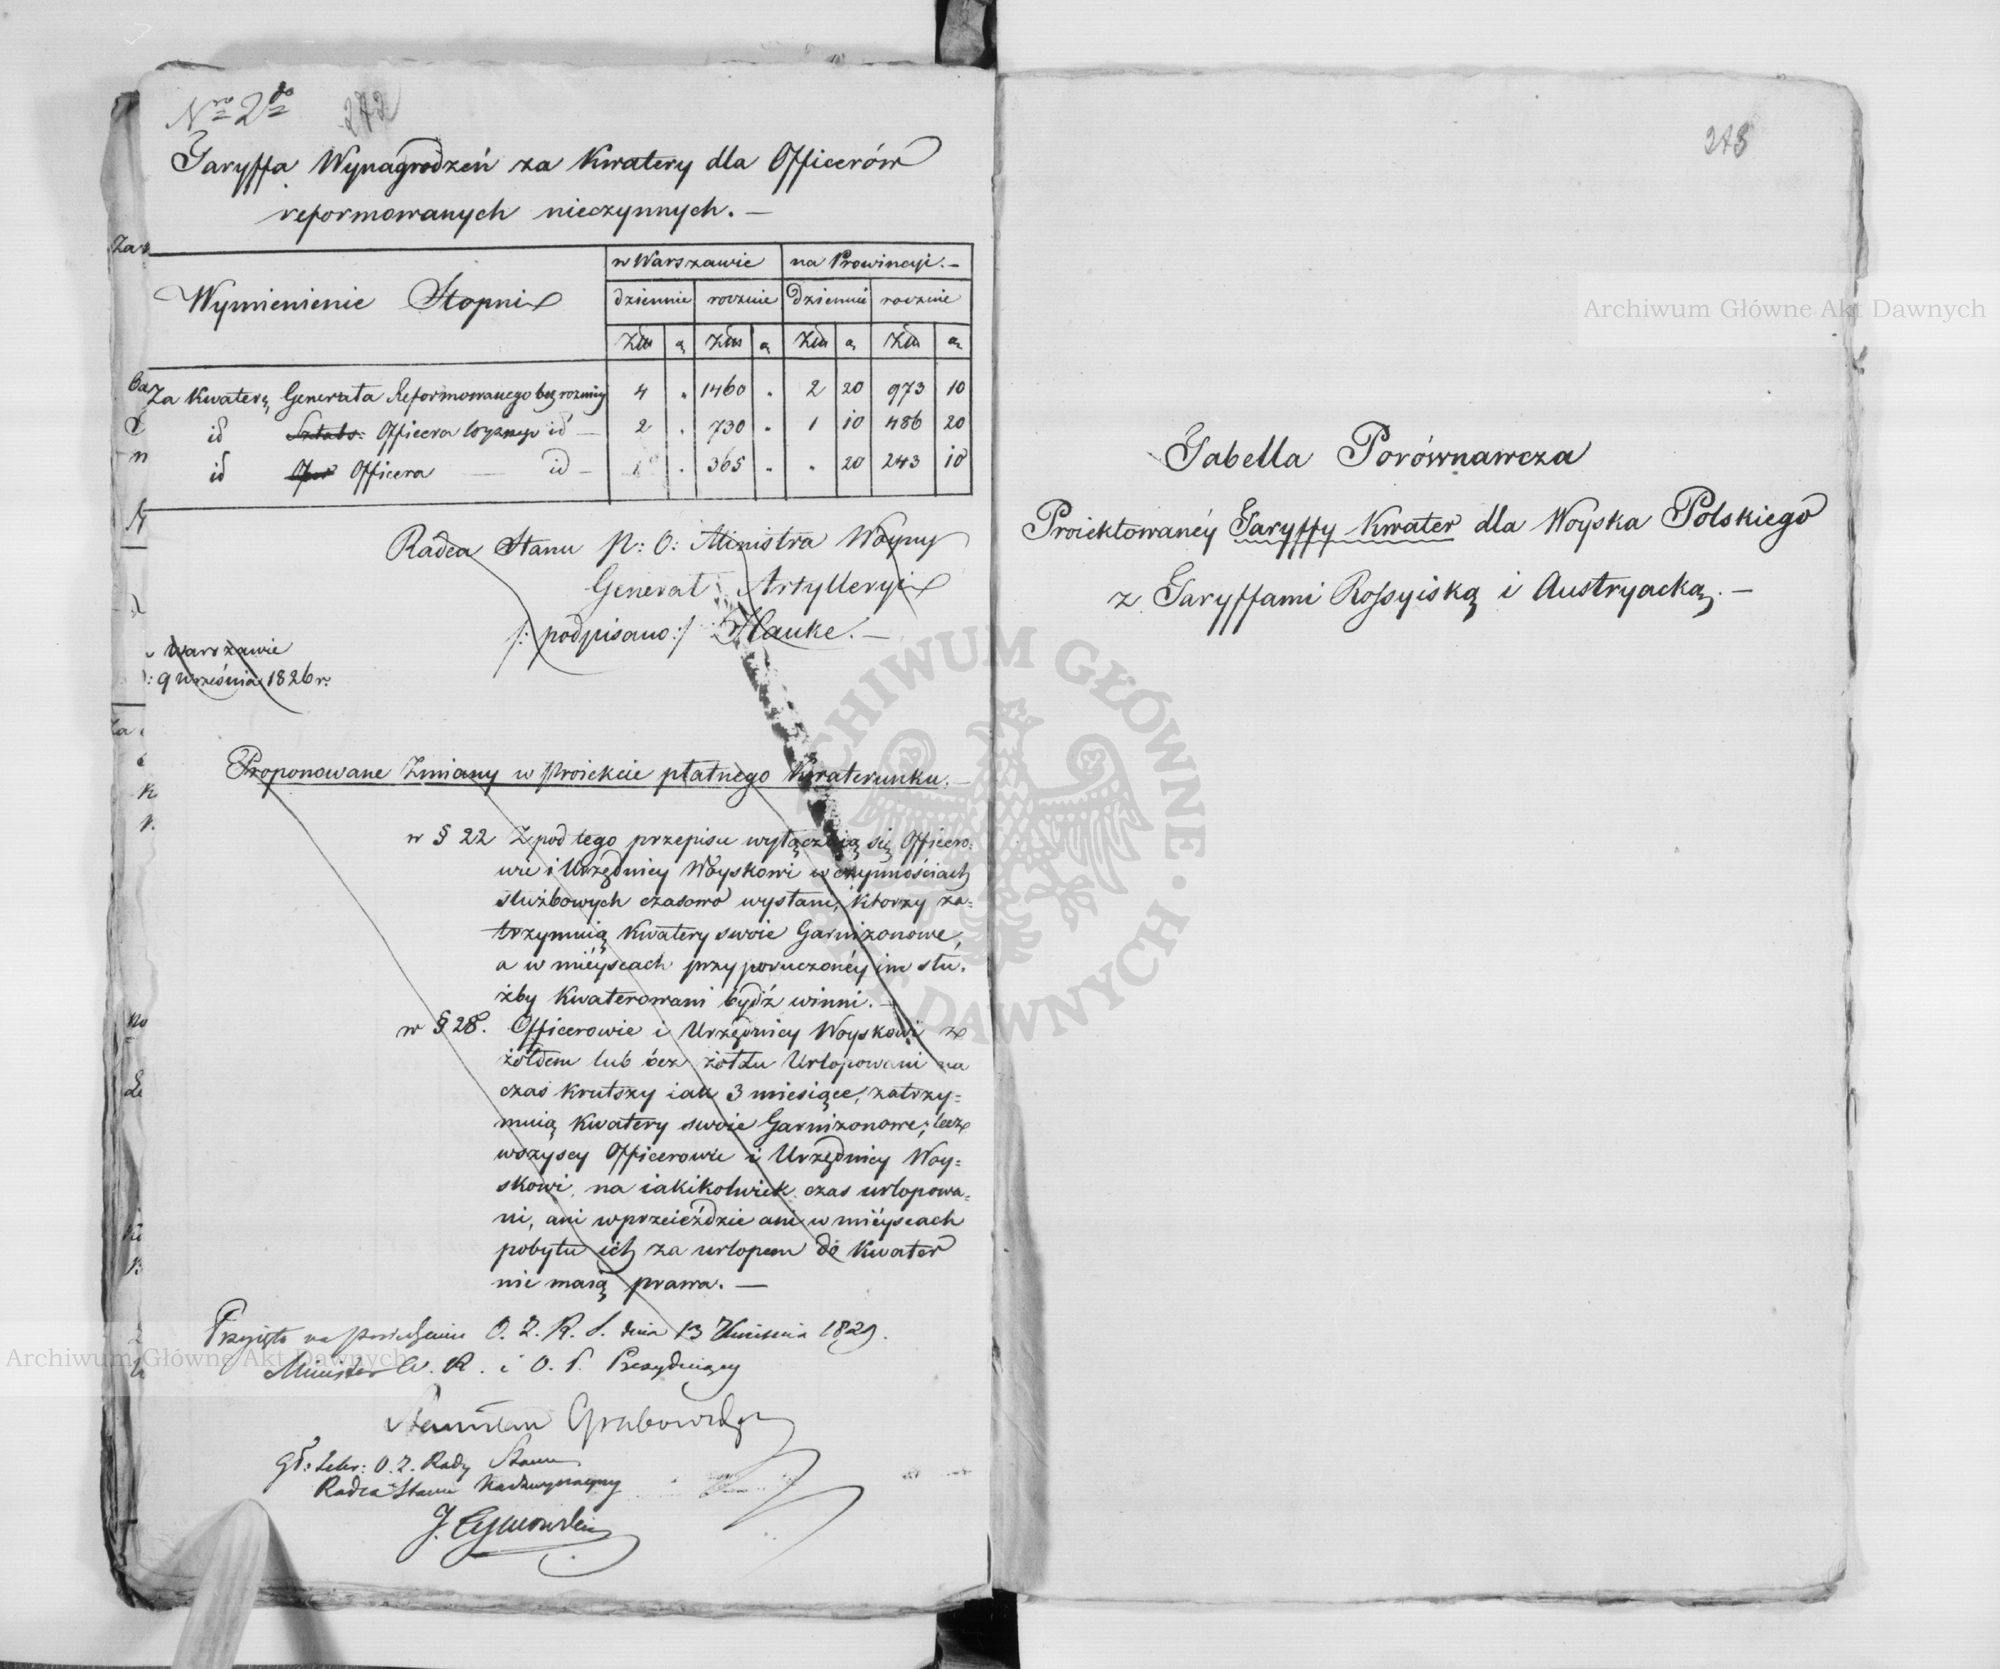 Nro 2do
272
Taryffa Wynagrodzeń za Kwatery dla Officerów
reformowanych nieczynnych. —
Wymienienie Stopni
w Warszawie | na Prowincyi. —
dziennie | rocznie | dziennie | rocznie
Złł | g | Złł | g | Złł | g | Złł | g
Za Kwaterę Generała Reformowanego bez różnicy | 4 | " | 1460 | " | 2 | 20 | 973 | 10
id Sztabs: Officera wyższego id — | 2 | " | 730 | " | 1 | 10 | 486 | 20
id Officera — id — | 1 | " | 365 | " | " | 20 | 243 | 10
Radca Stanu p: O: Ministra Woyny
Generał Artylleryi
/: podpisano :/ Hauke. —
w Warszawie
9 Września 1826 r:
Proponowane Zmiany w Proiekcie płatnego Kwaterunku. —
w § 22 Z pod tego przepisu wyłączaią się Officero-
wie i Urzędnicy Woyskowi w czynnościach
służbowych czasowo wysłani, którzy za-
trzymuią Kwatery swoie Garnizonowe,
a w mieyscach przy poruczoney im słu-
żby Kwaterowani bydź winni. —
w § 28. Officerowie i Urzędnicy Woyskowi z
żołdem lub bez żołdu Urlopowani na
czas krutszy iak 3 miesiące, zatrzy-
muią Kwatery swoie Garnizonowe; lecz
wszyscy Officerowie i Urzędnicy Woy-
skowi, na iakikolwiek czas urlopowa-
ni, ani w przeieździe ani w mieyscach
pobytu ich za urlopem do Kwater
nie maią prawa. —
Przyięto na posiedzeniu O. Z. R. S. dnia 13 Kwietnia 1829.
Minister W. R. i O. P. Prezyduiący
Stanisław Grabowski
Sekr: O. Z. Rady Stanu
Radca Stanu Nadzwyczayny
J. Tymowski
273
Tabella Porównawcza
Proiektowaney Taryffy Kwater dla Woyska Polskiego
z Taryffami Rossyiską i Austryacką. —
Archiwum Główne Akt Dawnych
Archiwum Główne Akt Dawnych
ARCHIWUM GŁÓWNE AKT DAWNYCH